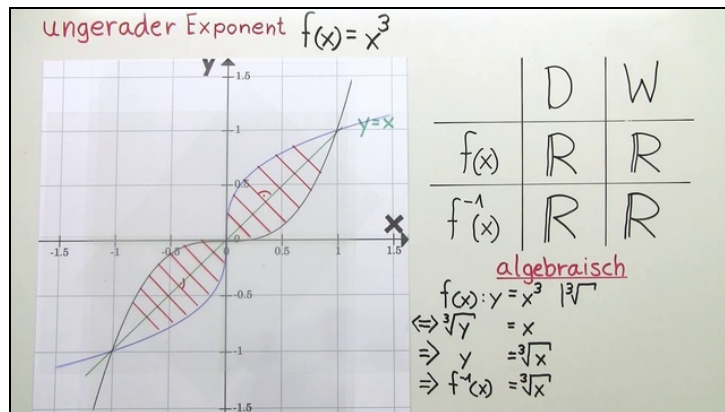 ungerader Exponent f(x) = x³
y
1.5
1
y=x
0.5
x
-1.5 -1 -0.5 0 0.5 1 1.5
-0.5
-1
-1.5
D W
f(x) ℝ ℝ
f⁻¹(x) ℝ ℝ
algebraisch
f(x): y = x³ |∛
⇔ ∛y = x
⇒ y = ∛x
⇒ f⁻¹(x) = ∛x